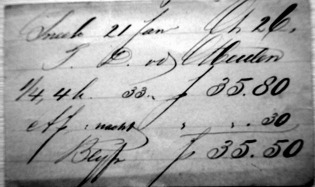 Sneek 21 Jan
T. D. vd Meulen
1/4, 4 k. 33.- f 35.80
Af : nacht " " . 30
Blyft f 35.50